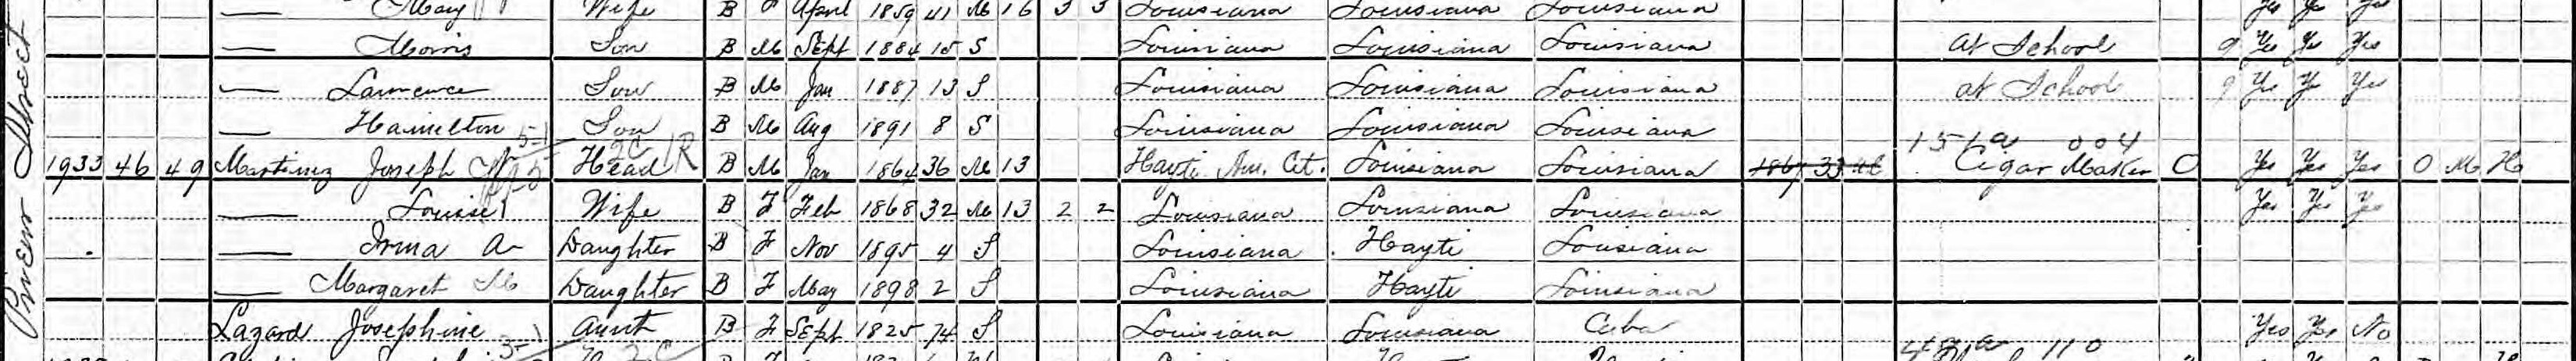 Mary Wife B F April 1859 41 M 16 3 3 Louisiana Louisiana Louisiana Yes Yes Yes
— Morris Son B M Sept 1884 15 S Louisiana Louisiana Louisiana at School 9 Yes Yes Yes
— Lawrence Son B M Jan 1887 13 S Louisiana Louisiana Louisiana at School 9 Yes Yes Yes
— Hamilton Son B M Aug 1891 8 S Louisiana Louisiana Louisiana
1933 46 49 Martinez Joseph Head B M Jan 1864 36 M 13 Hayti Am. Cit. Louisiana Louisiana 1867 33 Cigar Maker 0 Yes Yes Yes O M H
— Louise Wife B F Feb 1868 32 M 13 2 2 Louisiana Louisiana Louisiana Yes Yes Yes
— Irma A Daughter B F Nov 1895 4 S Louisiana Hayti Louisiana
— Margaret M Daughter B F May 1898 2 S Louisiana Hayti Louisiana
Lazard Josephine Aunt B F Sept 1825 74 S Louisiana Louisiana Cuba Yes Yes No
Street